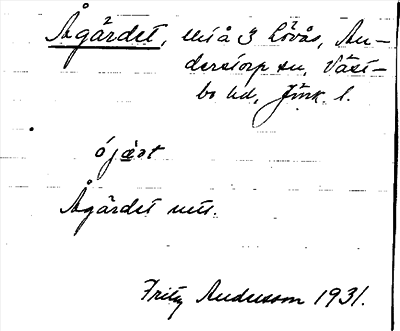 Ågärdet, urå 3 Lövås, An-
derstorp sn, Väst-
bo hd, Jönk. l.
ójæ̀ṛt
Ågärdet utt.
Fritz Andersson 1931.